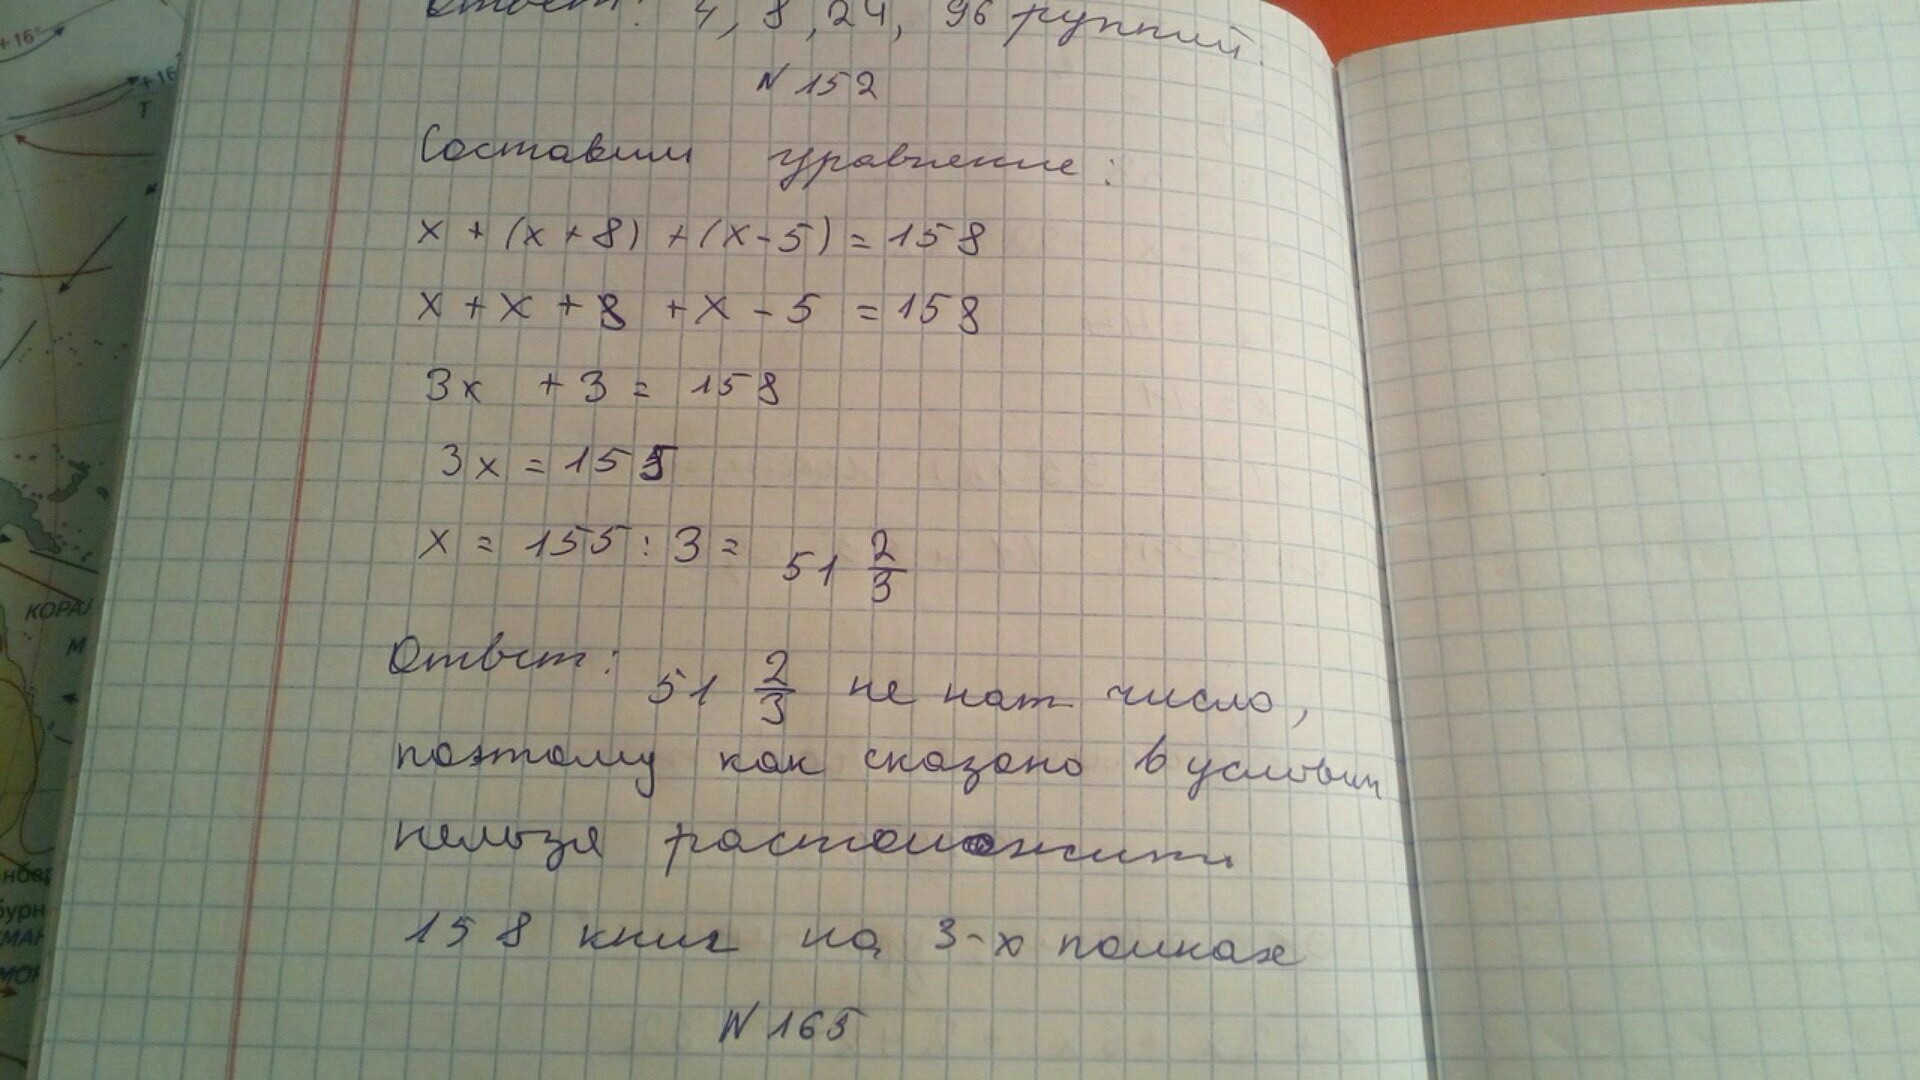 Ответ: 4, 8, 24, 96 рупий.
N 152
Составим уравнение:
x + (x + 8) + (x - 5) = 158
x + x + 8 + x - 5 = 158
3x + 3 = 158
3x = 155
x = 155 : 3 = 51 2/3
Ответ: 51 2/3 не нат число,
поэтому как сказано в условии
нельзя расположить
158 книг на 3-х полках
N 165
+16°
+16°
Т
КОРАЛ
М